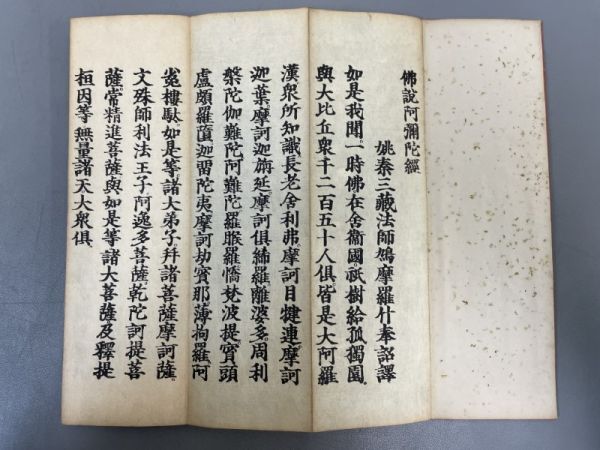 佛說阿彌陀經
姚秦三藏法師鳩摩羅什奉詔譯
如是我聞一時佛在舍衞國祇樹給孤獨園
與大比丘衆千二百五十人俱皆是大阿羅
漢衆所知識長老舍利弗摩訶目犍連摩訶
迦葉摩訶迦旃延摩訶俱絺羅離婆多周利
槃陀伽難陀阿難陀羅睺羅憍梵波提賓頭
盧頗羅墮迦留陀夷摩訶劫賓那薄拘羅阿
㝹樓馱如是等諸大弟子幷諸菩薩摩訶薩
文殊師利法王子阿逸多菩薩乾陀訶提菩
薩常精進菩薩與如是等諸大菩薩及釋提
桓因等無量諸天大衆俱